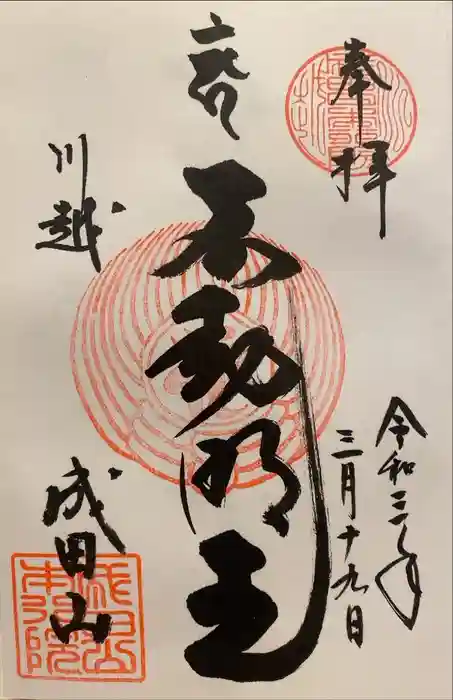 奉拝
令和三年
三月十九日
不動明王
川越
成田山